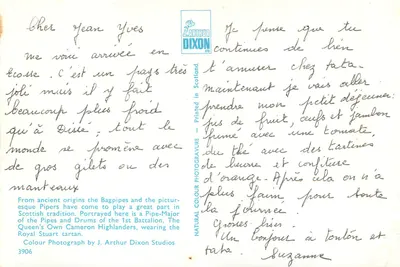 Cher Jean Yves
me voici arrivée en
Ecosse. C'est un pays très
joli mais il y fait
beaucoup plus froid
qu'à . tout le
monde se promène avec
de gros gilets ou des
manteaux
From ancient origins the Bagpipes and the pictur-
esque Pipers have come to play a great part in
Scottish tradition. Portrayed here is a Pipe-Major
of the Pipes and Drums of the 1st Battalion, The
Queen's Own Cameron Highlanders, wearing the
Royal Stuart tartan.
Colour Photograph by J. Arthur Dixon Studios
3906
DIXON
NATURAL COLOUR PHOTOGRAVURE — Printed in Scotland.
Je pense que tu
continues de bien
t'amuser chez tata.
maintenant je vais aller
prendre mon petit déjeuner:
jus de fruit, œufs et jambon
fumé avec une tomate,
du thé avec des tartines
de beurre et confiture
d'orange. Après cela on n'a
plus faim pour toute
la journée.
Grosses bises
Un bonjour à tonton et
tata. Suzanne